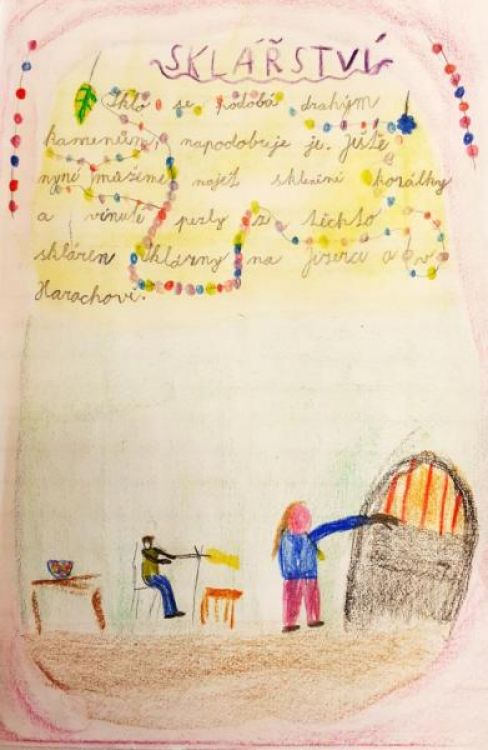 SKLÁŘSTVÍ
Sklo se podobá drahým
kamenům, napodobuje je. Ještě
nyní můžeme najít skleněné korálky
a vinuté perly z těchto
skláren sklárny na Jizerce a v
Harachově.